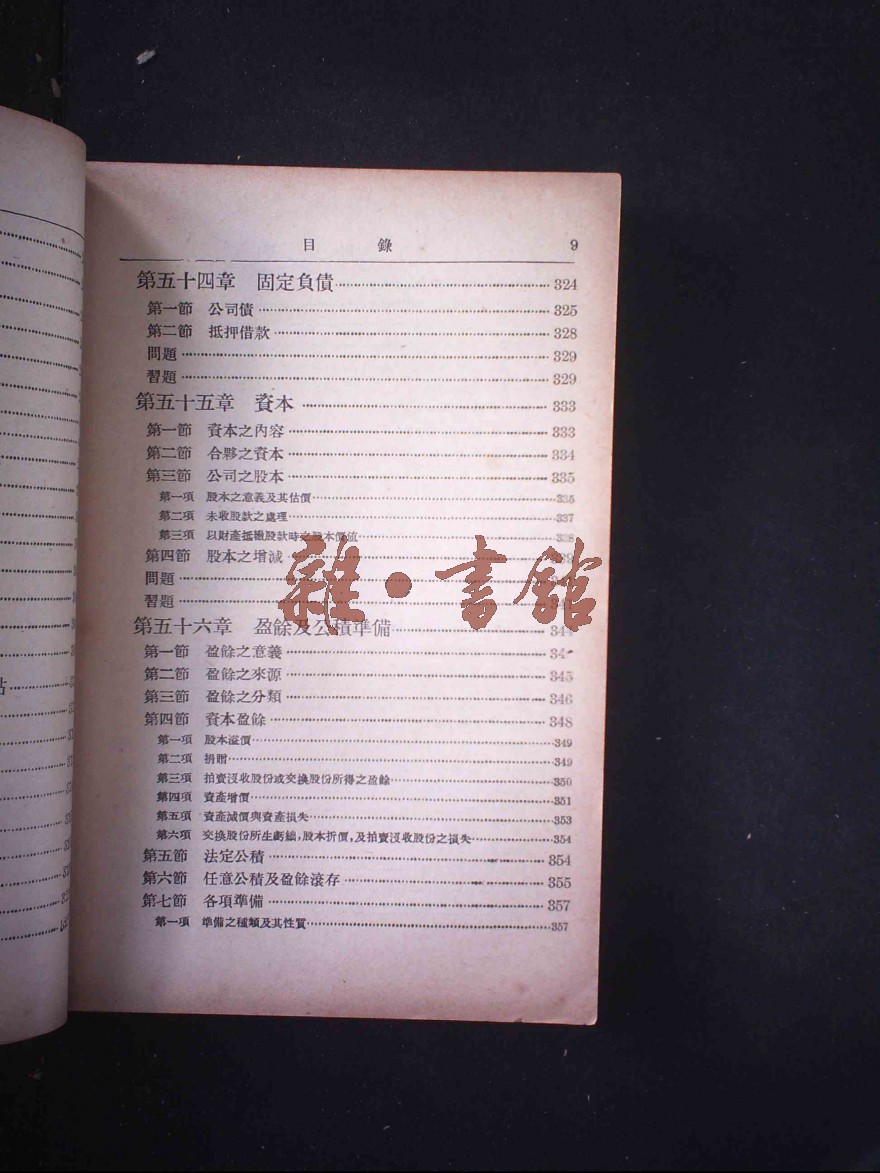 目錄 9
第五十四章 固定負債 324
第一節 公司債 325
第二節 抵押借款 328
問題 329
習題 329
第五十五章 資本 333
第一節 資本之內容 333
第二節 合夥之資本 334
第三節 公司之股本 335
第一項 股本之意義及其估價 335
第二項 未收股款之處理 337
第三項 以財產抵繳股款時之股本價值 338
第四節 股本之增減
問題
習題
第五十六章 盈餘及公積準備 344
第一節 盈餘之意義
第二節 盈餘之來源 345
第三節 盈餘之分類 346
第四節 資本盈餘 348
第一項 股本溢價 349
第二項 捐贈 349
第三項 拍賣沒收股份或交換股份所得之盈餘 350
第四項 資產增價 351
第五項 資產減價與資產損失 353
第六項 交換股份所生虧絀,股本折價,及拍賣沒收股份之損失 354
第五節 法定公積 354
第六節 任意公積及盈餘滾存 355
第七節 各項準備 357
第一項 準備之種類及其性質 357
雜·書館